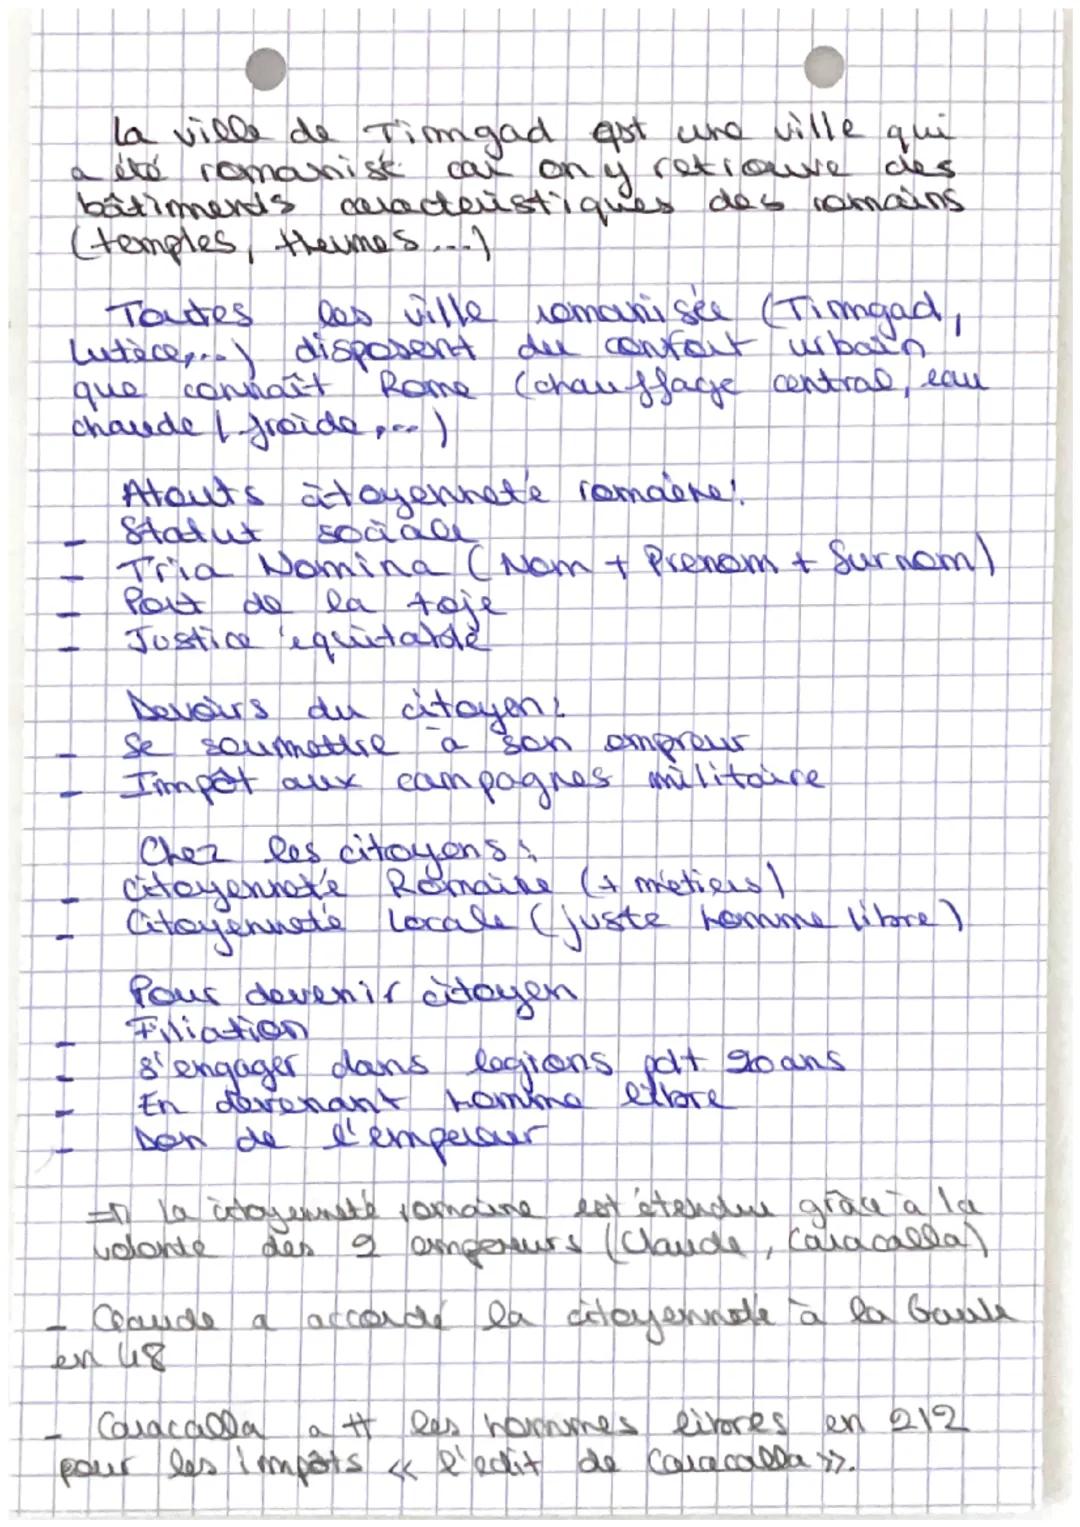 La ville de Timgad est une ville qui
a été romanisé car on y retrouve des
bâtiments caractéristiques des romains
(temples, thermes...)
Toutes les ville romanisée (Timgad,
Lutèce,...) disposent du confort urbain
que connaît Rome (chauffage central, eau
chaude / froide,...)
Atouts citoyenneté romaine:
- Statut sociale
- Tria Nomina (Nom + Prenom + Surnom)
- Port de la toje
- Justice équitable
Devoirs du citoyen:
- Se soumettre à son empreur
- Impôt aux campagnes militaire
Chez les citoyens:
- Citoyenneté Romaine (+ métiers)
- Citoyenneté Locale (juste homme libre)
Pour devenir citoyen
- Filiation
- S'engager dans legions pdt 20 ans
- En devenant homme libre
- Don de l'empereur
=> la citoyenneté romaine est étendue grâce à la
volonté des 2 empereurs (Claude, Caracalla)
- Claude a accordé la citoyenneté à la Gaule
en 48
- Caracalla a tt les hommes libres en 212
pour les impôts « l'edit de Caracalla ».